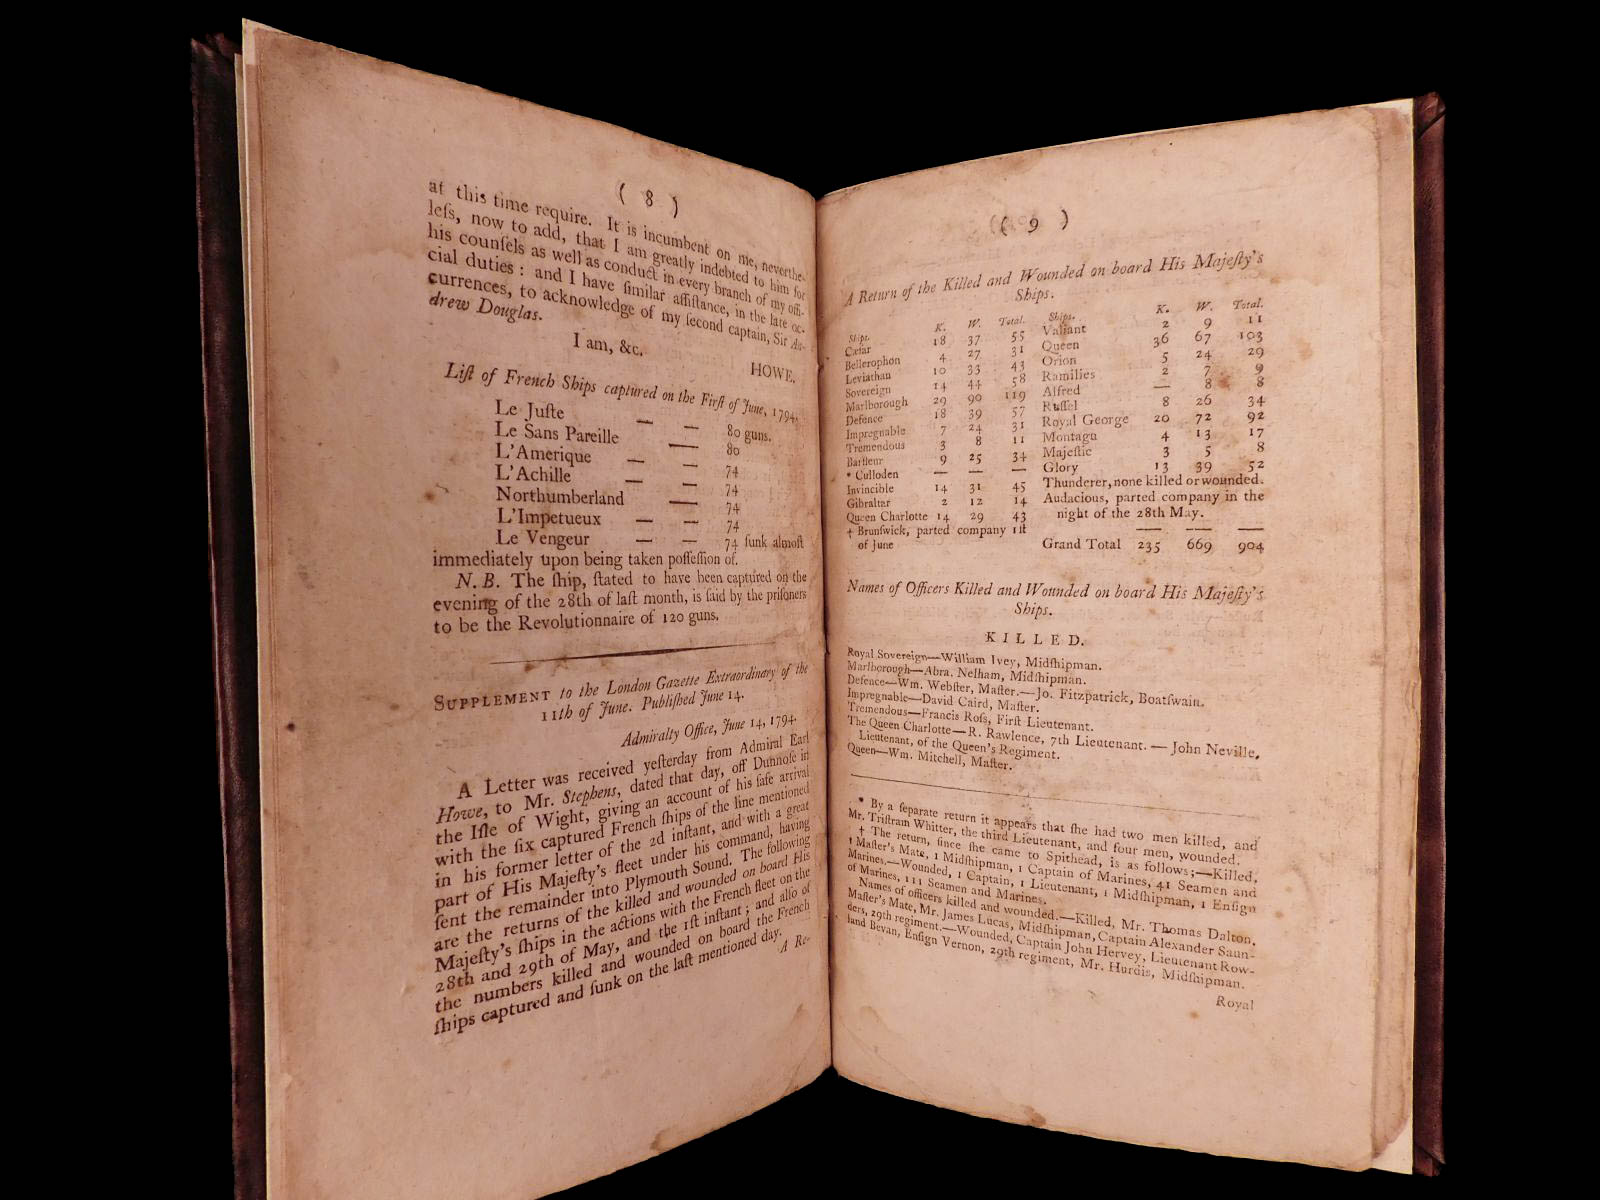 ( 8 )
at this time require. It is incumbent on me, neverthe-
leſs, now to add, that I am greatly indebted to him for
his counſels as well as conduct in every branch of my offi-
cial duties : and I have ſimilar aſſiſtance, in the late oc-
currences, to acknowledge of my ſecond captain, Sir An-
drew Douglas.
I am, &c.
HOWE.
Liſt of French Ships captured on the Firſt of June, 1794,
Le Juſte — — 80 guns.
Le Sans Pareille — 80
L'Amerique — — 74
L'Achille — — 74
Northumberland — 74
L'Impetueux — — 74
Le Vengeur — — 74 ſunk almoſt
immediately upon being taken poſſeſſion of.
N. B. The ſhip, ſtated to have been captured on the
evening of the 28th of laſt month, is ſaid by the priſoners
to be the Revolutionnaire of 120 guns.
SUPPLEMENT to the London Gazette Extraordinary of the
11th of June. Publiſhed June 14.
Admiralty Office, June 14, 1794.
A Letter was received yeſterday from Admiral Earl
Howe, to Mr. Stephens, dated that day, off Dunnoſe in
the Iſle of Wight, giving an account of his ſafe arrival
with the ſix captured French ſhips of the line mentioned
in his former letter of the 2d inſtant, and with a great
part of His Majeſty's fleet under his command, having
ſent the remainder into Plymouth Sound. The following
are the returns of the killed and wounded on board His
Majeſty's ſhips in the actions with the French fleet on the
28th and 29th of May, and the 1ſt inſtant ; and alſo of
the numbers killed and wounded on board the French
ſhips captured and ſunk on the laſt mentioned day.
A Re-
( 9 )
A Return of the Killed and Wounded on board His Majeſty's
Ships.
Ships. K. W. Total.
Cæſar 18 37 55
Bellerophon 4 27 31
Leviathan 10 33 43
Sovereign 14 44 58
Marlborough 29 90 119
Defence 18 39 57
Impregnable 7 24 31
Tremendous 3 8 11
Barfleur 9 25 34
* Culloden — — —
Invincible 14 31 45
Gibraltar 2 12 14
Queen Charlotte 14 29 43
† Brunſwick, parted company 1ſt
of June
Ships. K. W. Total.
Valiant 2 9 11
Queen 36 67 103
Orion 5 24 29
Ramilies 2 7 9
Alfred — 8 8
Ruſſel 8 26 34
Royal George 20 72 92
Montagu 4 13 17
Majeſtic 3 5 8
Glory 13 39 52
Thunderer, none killed or wounded.
Audacious, parted company in the
night of the 28th May.
Grand Total 235 669 904
Names of Officers Killed and Wounded on board His Majeſty's
Ships.
KILLED.
Royal Sovereign—William Ivey, Midſhipman.
Marlborough—Abra. Nelham, Midſhipman.
Defence—Wm. Webſter, Maſter.—Jo. Fitzpatrick, Boatſwain.
Impregnable—David Caird, Maſter.
Tremendous—Francis Roſs, Firſt Lieutenant.
The Queen Charlotte—R. Rawlence, 7th Lieutenant. — John Neville,
Lieutenant, of the Queen's Regiment.
Queen—Wm. Mitchell, Maſter.
* By a ſeparate return it appears that ſhe had two men killed, and
Mr. Triſtram Whitter, the third Lieutenant, and four men, wounded.
† The return, ſince ſhe came to Spithead, is as follows;—Killed,
1 Maſter's Mate, 1 Midſhipman, 1 Captain of Marines, 41 Seamen and
Marines.—Wounded, 1 Captain, 1 Lieutenant, 1 Midſhipman, 1 Enſign
of Marines, 111 Seamen and Marines.
Names of officers killed and wounded.—Killed, Mr. Thomas Dalton,
Maſter's Mate, Mr. James Lucas, Midſhipman, Captain Alexander Saun-
ders, 29th regiment.—Wounded, Captain John Hervey, Lieutenant Row-
land Bevan, Enſign Vernon, 29th regiment, Mr. Hurdis, Midſhipman.
Royal